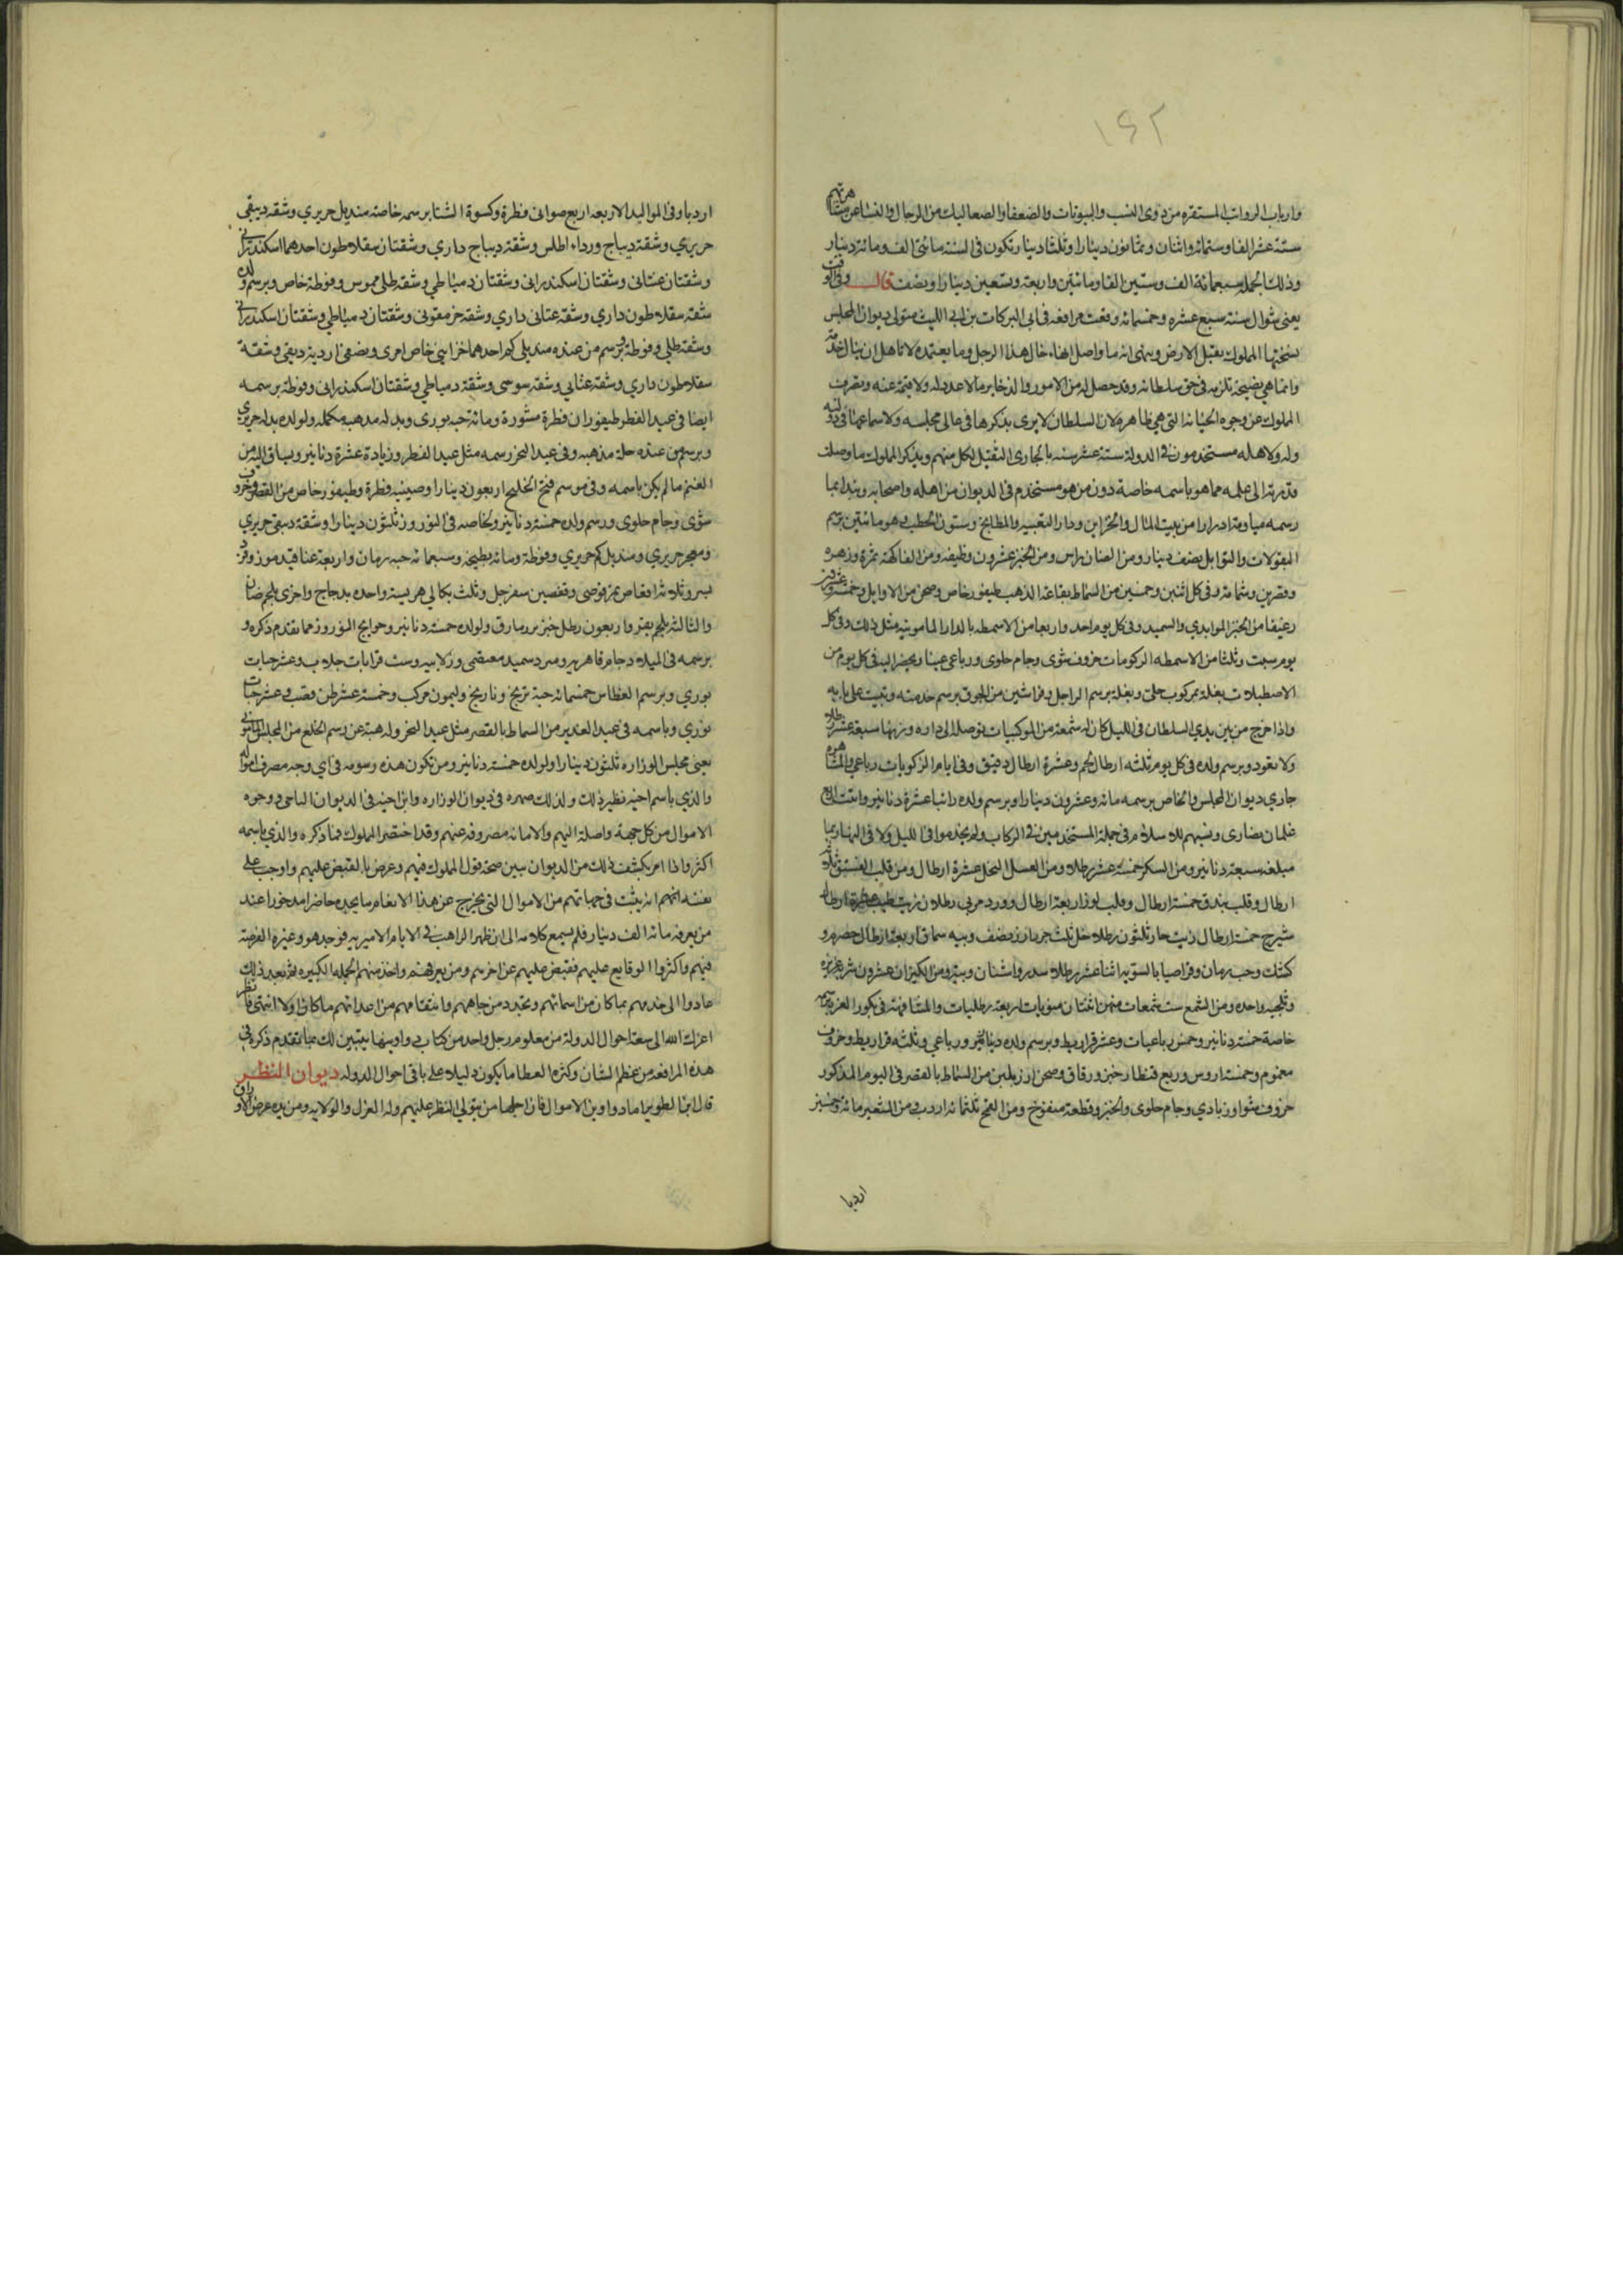 ١٤٢
وارباب الرواتب المستقره من ذوى النسب والبيوتات والضعفا والصعاليك من الرجال والنسا عن مشاهرتهم
ستة عشر الفا وستمائة واثنان وثمانون دينارا وثلثا دينار تكون فى السنة مائتى الف ومائة دينار
وذلك الجمله سبعمائة الف وستين الفا ومائتين واربعة وتسعين دينارا ونصف قال وفى الوقت
يعنى شوال سنة سبع عشره وخمسمائه وقعت مرافعة فى ابى البركات بن ابى الليث متولى ديوان المجلس
نسختها المملوك يقبل الارض وينهى انه ما واصل انهاء حال هذا الرجل وما يعتمده لانه اهل ان ينال خدمة
وانما هى نصيحة تلزمه فى حق سلطانه وقد حصل له من الاموال والذخاير مالا عدد له ولا قيمة عنه ويعرف
المملوك عن وجوه الجنايات التى هى ظاهره لان السلطان لا يرى بذكرها فى عالى مجلسه ولا سماعها فى دولته
وله ولاهله مستخدمون فى الدولة ستة عشر سنه بالجارى الثقيل لكل منهم ويذكر المملوك ما وصلت
قدرته الى علمه مما هو باسمه خاصة دون من هو مستخدم فى الديوان من اهله واصحابه ويبدا بما
رسمه مياومة ادرارا من بيت المال والخزاين ودار التعبيه والمطابخ وشون الحطب وهو ما يبين برسم
البقولات والتوابل نصف دينار ومن الضان راس ومن الخبز عشرون وظيفه ومن الفاكهة ثمرة وزهره
رغيفا من الخبز الموايدى والسميد وفى كل يوم احد واربعا من الاسمطه بالدار المامونيه مثل ذلك وفى كل
يوم سبت وثلثا من الاسمطه الركوبات خروف شوى وجام حلوى ورباعى عينا ويحضر اليه فى كل يوم من
الاصطبلات بغلة بمركوب حلى وبغلة برسم الراجل وفراشين من الجوق برسم خدمته وتبيت على بابه
واذا خرج من بين يدي السلطان فى الليل كان له شمعة من الموكبيات توصله الى داره وزنها سبعة عشر رطلا
ولا تعود وبرسم ولده فى كل يوم ثلثه ارطال لحم وعشرة ارطال دقيق وفى ايام الركوبات رباعى والمشاهره
جاري ديوان المجلس والخاص برسمه مائه وعشرون دينارا وبرسم ولده راتبا عشرة دنانير واثبت اربع
غلمان نصارى ونسبهم للاسلام فى جملة المستخدمين فى الركاب ولم يخدموا فى الليل ولا فى النهار بما
مبلغه سبعة دنانير ومن السكر خمسة عشر رطلا ومن العسل النحل عشرة ارطال ومن قلب الفستق ثلاثة
ارطال وقلب بندق خمسة ارطال وقلب لوز اربعة ارطال وورد مربى رطلان زيت طيب عشرة ارطال
شيرج خمسة ارطال زيت حار ثلثون رطلا خل ثلث جرار ارز نصف ويبه سماق اربعة ارطال حصرم و
كشك وحب رمان وقراصيا بالسويه اثنا عشر رطلا سدر واشنان ويبة ومن الكيزان عشرون شربه عزيزيه
وثلجيه واحده ومن الشمع ست شمعات منهن اثنتان منويات اربعة رطليات والمشافهة فى بكور الغره برسم
خاصة خمسة دنانير وخمس رباعيات وعشر قراريط وبرسم ولده دينار ورباعي وثلثه قراريط وخروف
مغموم وخمسة اروس وربع قنطار خبز ورقاق وصحن ارز بلبن من السماط بالقصر فى اليوم المذكور
خروف شوا وزبادي وجام حلوى والخبز وقطعة منفوخ ومن القمح ثلثمائه اردب ومن الشعير مائة وخمسين
اردبا
اردبا وفى المواليد الاربعه اربع صوانى فطرة وكسوة الشتا برسمه خاصة منديل حريري وشقه دبيقى
حريري وشقة ديباج ورداء اطلس وشقة ديباج داري وشقتان سقلاطون احدهما اسكندرانى
وشقتان عتابى وشقتان اسكندرانى وشقتان دمياطي وشقه طلى مموس وفوطة خاص وبرسم ولده
شقة سقلاطون داري وشقة عتابى داري وشقة خز مقونى وشقتان دمياطي وشقتان اسكندرانى
وشقه طلى وفوطة وبرسم من عنده منديلى كم احدهما خزاينى خاص اخرى ونصفى اردية دبيقى وشقة
سقلاطون داري وشقة عتابى وشقه سوسى وشقة دمياطي وشقتان اسكندرانى وفوطة برسمه
ايضا فى عيد الفطر طيفوران فطرة مشورة ومائة حبه بورى وبدله مذهبه مكمله ولولده بدله حريري
وبرسم من عنده حلة مذهبه وفى عيد النحر رسمه مثل عيد الفطر وزيادة عشرة دنانير ويساق اليه من
الغنم ما لم يكن باسمه وفى موسم فتح الخليج اربعون دينارا وصينيه فطرة وطيفور خاص من القصر وخروف
شوى وجام حلوى وبرسم ولده خمسة دنانير ولخاصه فى النوروز ثلثون دينارا وشقه دبيقى حريري
ومعجر حريري ومنديل كم حريري وفوطة ومائة بطيخة وسبعمائه حبه رمان واربعة عناقيد موز وفرد
بسر وثلاثة اقفاص تمر قوصى وقفصين سفرجل وثلث بكالي هريسة واحده بدجاج واخرى بلحم ضان
والثالثه بلحم بقر واربعون رطل خبز برماورد ولولده خمسة دنانير وحوايج النوروز مما تقدم ذكره و
برسمه فى الميلاد جام قاهريه ومترد سميد معتصى وزلابيه وست قرابات جلاب وعشر حبات
بوري وبرسم الغطاس خمسمائه حبة ترنج ونارنج وليمون مركب وخمسة عشر طن قصب وعشر حبات
بوري وباسمه فى عيد الغدير من السماط بالقصر مثل عيد النحر وله هبة عن رسم الخلع من المجلس المامونى
يعنى مجلس الوزاره ثلثون دينارا ولولده خمسة دنانير ومن تكون هذه رسومه فى اي وجه مصرف امواله
والذي باسم اخيه نظير ذلك وكذلك صهره فى ديوان الوزاره وابن اخيه فى الديوان التاجى ووجوه
الاموال من كل جهة واصلة اليهم والامانه مصروفه عنهم وقد اختصر المملوك فيما ذكره والذي باسمه
اكثر واذا امر بكشف ذلك من الديوان تبين صحة قول المملوك فيهم وعرض بالقبض عليهم واوجب على
نفسه انهم ان يثبت فى جهاتهم من الاموال التى تخرج عن هذا الانعام ما يجده حاضرا مدخورا عند
من يعرفه مائة الف دينار فلم يسمع كلامه الى ان ظهر الراهب فى الايام الاميريه فوجد هو وغيره الفرصة
فيهم واكثروا الوقايع عليهم فقبض عليهم عن اخرهم ومن يعرفهم واخذ منهم الجمله الكبيره ثم بعد ذلك
عادوا الى خدمهم بما كان من اسمائهم وتجدد من جاههم وانتقامهم من اعدائهم ما كان اولا انتهى فانظر
اعزك الله الى سعة احوال الدولة من معلوم رجل واحد من كتاب دواوينها يتبين لك مما تقدم ذكره فى
هذه المرافعة من عظم الشان وكثرة العطا ما يكون دليلا على باقى احوال الدوله ديوان النظر
قال ابن الطوير اما دواوين الاموال فان اجلها من يتولى النظر عليهم وله العزل والولايه ومن يده عرض الاوراق